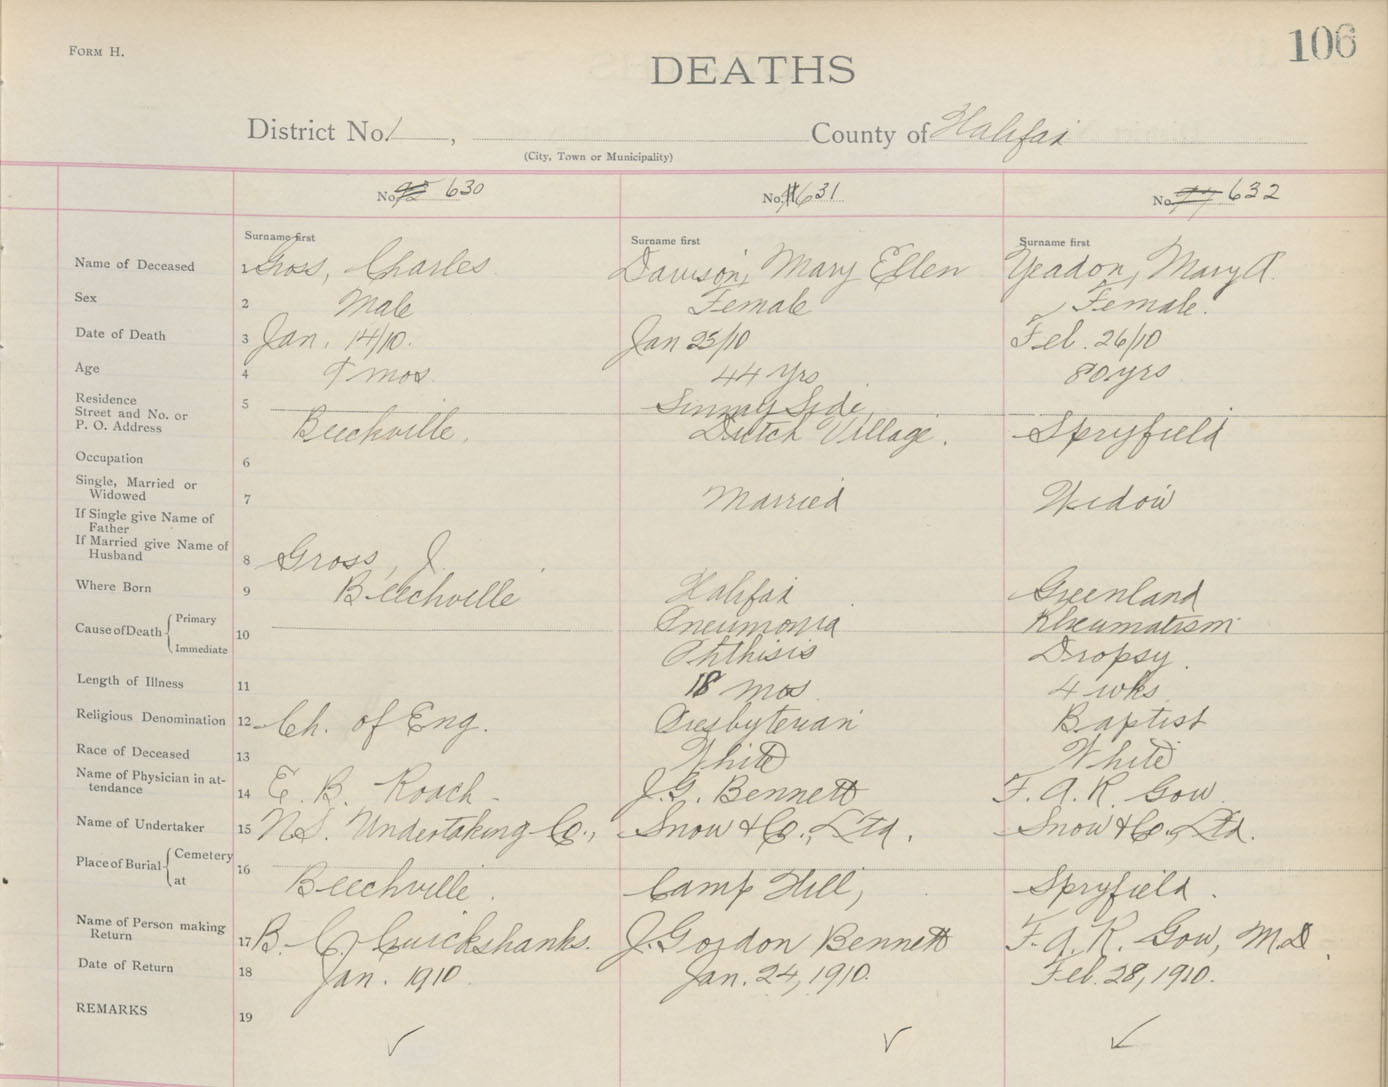 106
FORM H.
DEATHS
District No. 1, County of Halifax
(City, Town or Municipality)
No. 630 No. 631 No. 632
Surname first Surname first Surname first
Name of Deceased 1 Gross, Charles Dawson, Mary Ellen Yeadon, Mary A.
Sex 2 Male Female Female.
Date of Death 3 Jan. 14/10. Jan 23/10 Feb. 26/10
Age 4 9 mos 44 yrs 80 yrs
Residence 5 Sunny Side,
Street and No. or
P. O. Address Beechville. Dutch Village. Spryfield
Occupation 6
Single, Married or
Widowed 7 Married Widow
If Single give Name of
Father
If Married give Name of
Husband 8 Gross, J.
Where Born 9 Beechville Halifax Greenland
Cause of Death { Primary 10 Pneumonia Rheumatism
Immediate Phthisis Dropsy.
Length of Illness 11 18 mos 4 wks
Religious Denomination 12 Ch. of Eng. Presbyterian Baptist
Race of Deceased 13 White White
Name of Physician in at-
tendance 14 E. B. Roach J. G. Bennett F. A. R. Gow
Name of Undertaker 15 N.S. Undertaking Co., Snow & Co., Ltd. Snow & Co., Ltd.
Place of Burial { Cemetery 16
at Beechville. Camp Hill, Spryfield.
Name of Person making
Return 17 B. C. Cruickshanks. J. Gordon Bennett F. A. R. Gow, M.D.
Date of Return 18 Jan. 1910. Jan. 24, 1910. Feb. 28, 1910.
REMARKS 19